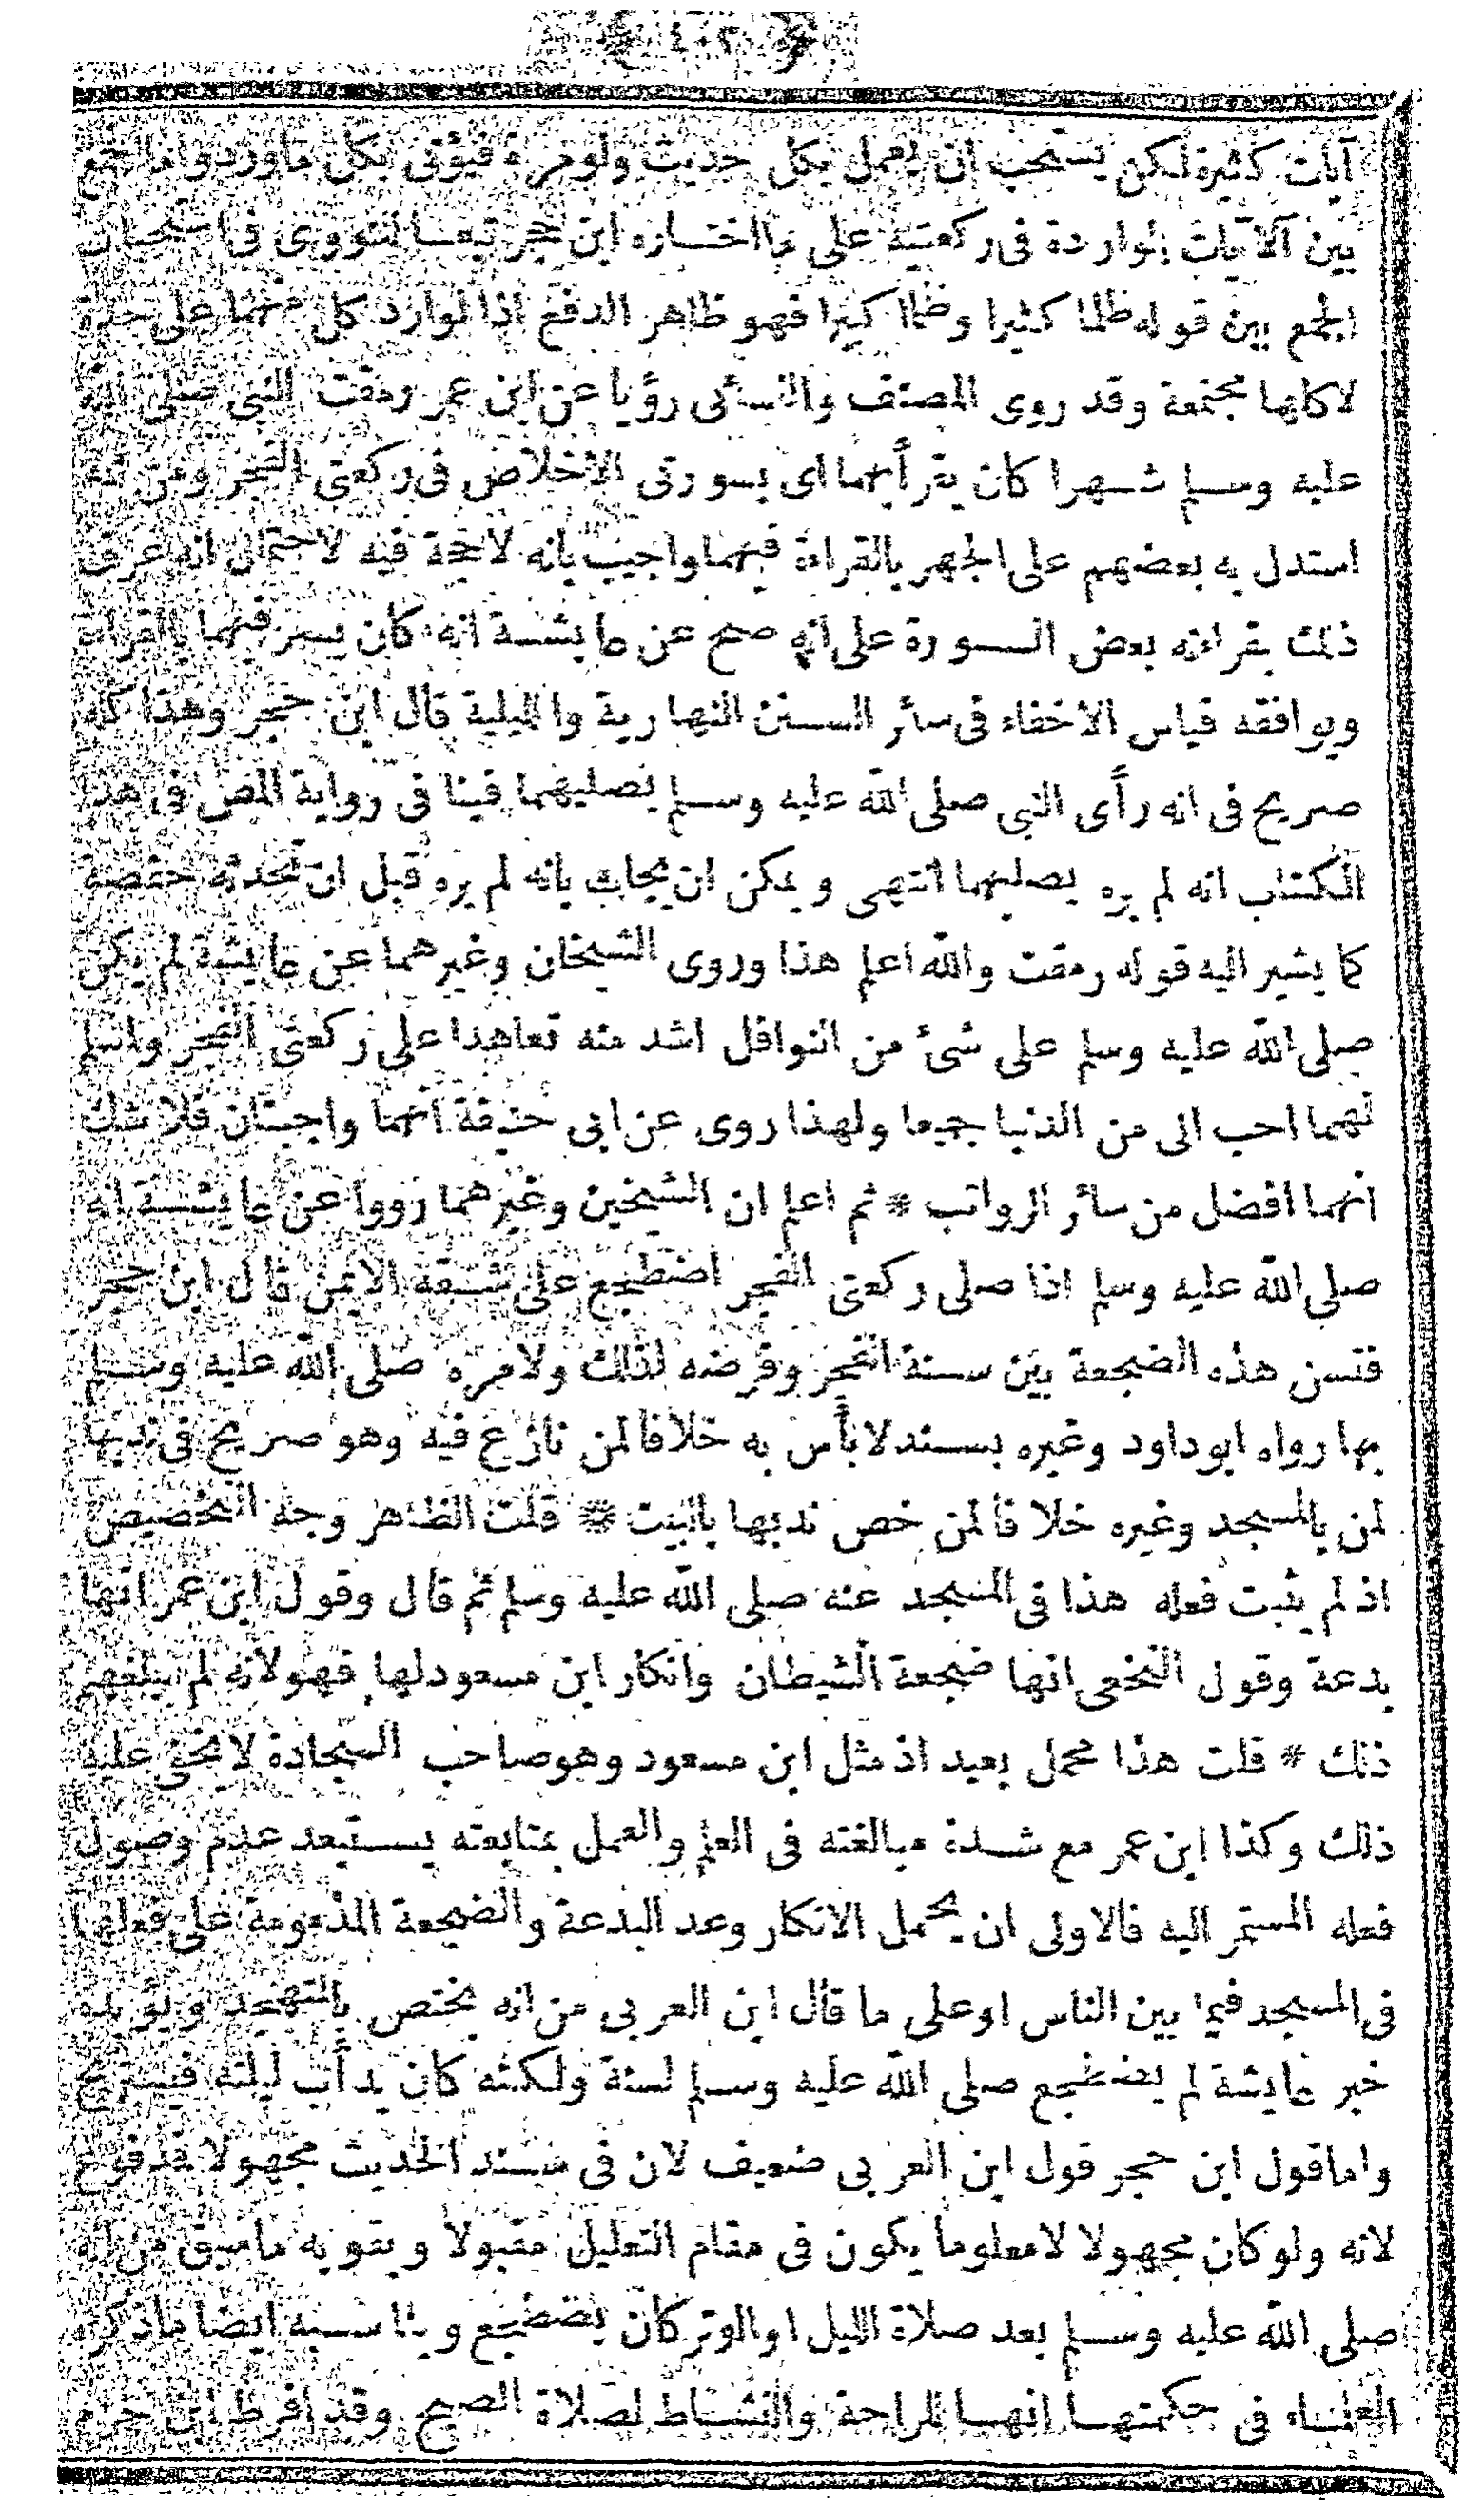 ﴿ ٤٠٢ ﴾
آيات كثيرة لكن يستحب ان يعمل بكل حديث ولو مرة فيؤتى بكل ما ورد واما الجمع
بين الآيات الواردة فى ركعتيه على ما اختاره ابن حجر تبعا للنووى فى استحباب
الجمع بين قوله ظلما كثيرا وظلما كبيرا فهو ظاهر الدفع اذا لوارد كل منهما على حدة
لا كلها مجتمعة وقد روى المصنف والنسائى رؤيا عن ابن عمر رمقت النبى صلى الله
عليه وسلم شهرا كان يقرأ بهما اى بسورتى الاخلاص فى ركعتى الفجر ومن ثمه
استدل به بعضهم على الجهر بالقراءة فيهما واجيب بانه لا حجة فيه لاحتمال انه عرف
ذلك بقراءته بعض السورة على انه صح عن عايشة انه كان يسر فيهما بالقراءة
ويوافقه قياس الاخفاء فى سائر السنن النهارية والليلية قال ابن حجر وهذا كله
صريح فى انه رأى النبى صلى الله عليه وسلم يصليهما فينافى رواية المص فى هذا
الكتاب انه لم يره يصليهما انتهى ويمكن ان يجاب بانه لم يره قبل ان تحدثه حفصة
كما يشير اليه قوله رمقت والله اعلم هذا وروى الشيخان وغيرهما عن عايشة لم يكن
صلى الله عليه وسلم على شئ من النوافل اشد منه تعاهدا على ركعتى الفجر ولمسلم
لهما احب الى من الدنيا جميعا ولهذا روى عن ابى حنيفة انهما واجبتان فلا شك
انهما افضل من سائر الرواتب * ثم اعلم ان الشيخين وغيرهما رووا عن عايشة انه
صلى الله عليه وسلم اذا صلى ركعتى الفجر اضطجع على شقه الايمن قال ابن حجر
فتسن هذه الضجعة بين سنة الفجر وفرضه لذلك ولامره صلى الله عليه وسلم
بها رواه ابو داود وغيره بسند لا بأس به خلافا لمن نازع فيه وهو صريح فى ندبها
لمن بالمسجد وغيره خلافا لمن خص ندبها بالبيت * قلت الظاهر وجه التخصيص
اذ لم يثبت فعله هذا فى المسجد عنه صلى الله عليه وسلم ثم قال وقول ابن عمر انها
بدعة وقول النخعى انها ضجعة الشيطان وانكار ابن مسعود لها فهو لانه لم يبلغهم
ذلك * قلت هذا محمل بعيد اذ مثل ابن مسعود وهو صاحب السجادة لا يخفى عليه
ذلك وكذا ابن عمر مع شدة مبالغته فى العلم والعمل بمتابعته يستبعد عدم وصول
فعله المستمر اليه فالاولى ان يحمل الانكار وعد البدعة والضجعة المذمومة على فعلها
فى المسجد فيما بين الناس او على ما قال ابن العربى من انه يختص بالتهجد ويؤيده
خبر عايشة لم يضطجع صلى الله عليه وسلم لسنة ولكنه كان يدأب ليلته فيستريح
واما قول ابن حجر قول ابن العربى ضعيف لان فى مسند الحديث مجهولا فمدفوع
لانه ولو كان مجهولا لا معلوما يكون فى مقام التعليل مقبولا ويقويه ما سبق من انه
صلى الله عليه وسلم بعد صلاة الليل او الوتر كان يضطجع ويناسبه ايضا ما ذكره
العلماء فى حكمتها انها للراحة والنشاط لصلاة الصبح وقد افرط ابن حزم